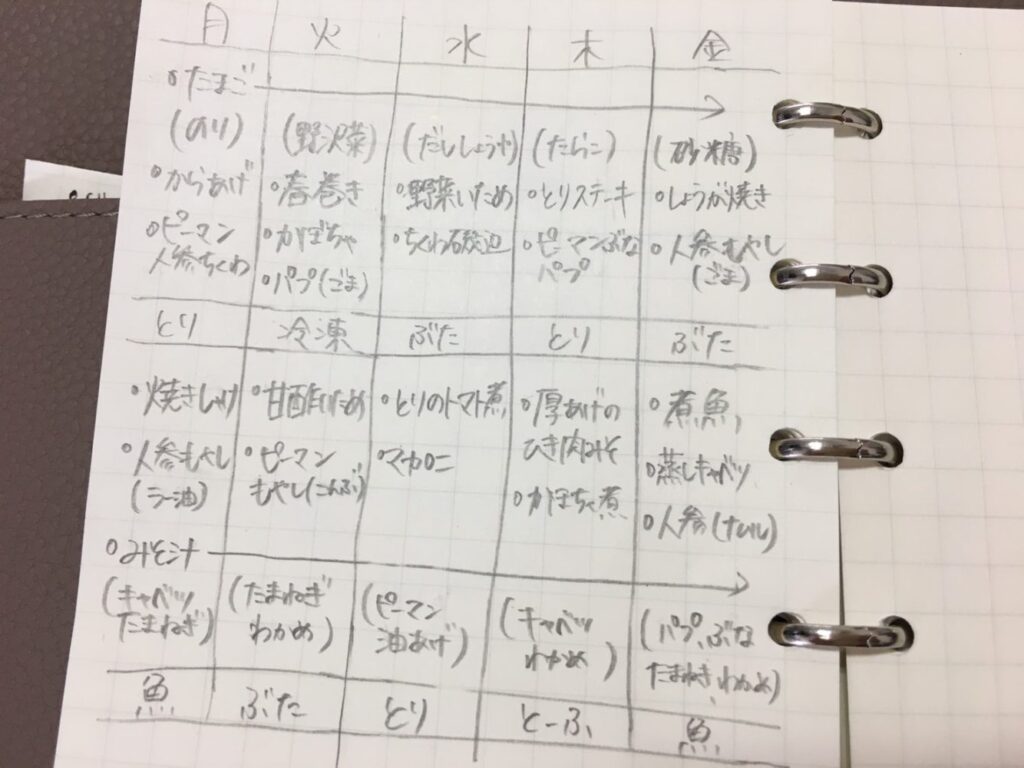 月 火 水 木 金
○たまご →
(のり) (野沢菜) (だししょうゆ) (たらこ) (砂糖)
○からあげ ○春巻き ○野菜いため ○とりステーキ ○しょうが焼き
○ピーマン ○かぼちゃ ○ちくわ磯辺 ○ピーマンぶな ○人参もやし
人参ちくわ ○パプ(ごま) パプ (ごま)
とり 冷凍 ぶた とり ぶた
○焼きしゃけ ○甘酢いため ○とりのトマト煮 ○厚あげの ○煮魚
○人参もやし ○ピーマン ○マカロニ ひき肉みそ ○蒸しキャベツ
(ラー油) もやし(こんぶ) ○かぼちゃ煮 ○人参
○みそ汁 →
(キャベツ (たまねぎ (ピーマン (キャベツ (パプ、ぶな
たまねぎ) わかめ) 油あげ) わかめ) たまねぎ、わかめ)
魚 ぶた とり とーふ 魚